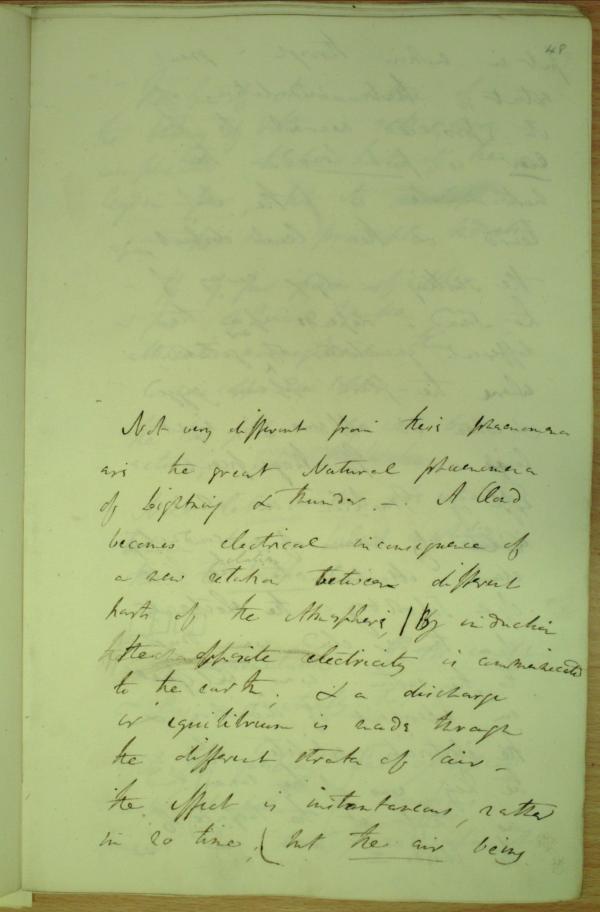 48
Not very different from these phaenomena
are the great Natural phaenomena
of Lightning & thunder. - A Cloud
becomes electrical in consequence of
a new relation between different
parts of the Atmosphere, / By induction
the opposite electricity is communicated
to the earth, & a discharge
or equilibrium is made through
the different strata of air -
the effect is instantaneous, rather
in no time, ( but the air being